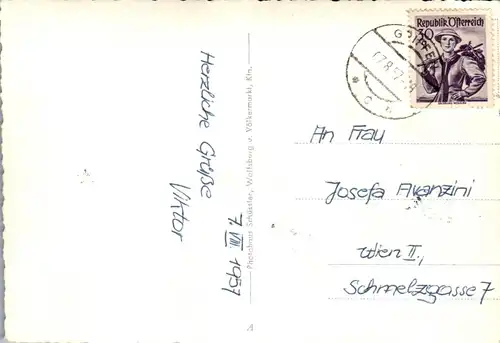 Herzliche Grüße
Viktor
7. VIII. 1957
Photohaus Schüssler, Wolfsburg u. Völkermarkt, Ktn.
Republik Österreich
30
An Frau
Josefa Avanzini
Wien II.,
Schmelzgasse 7